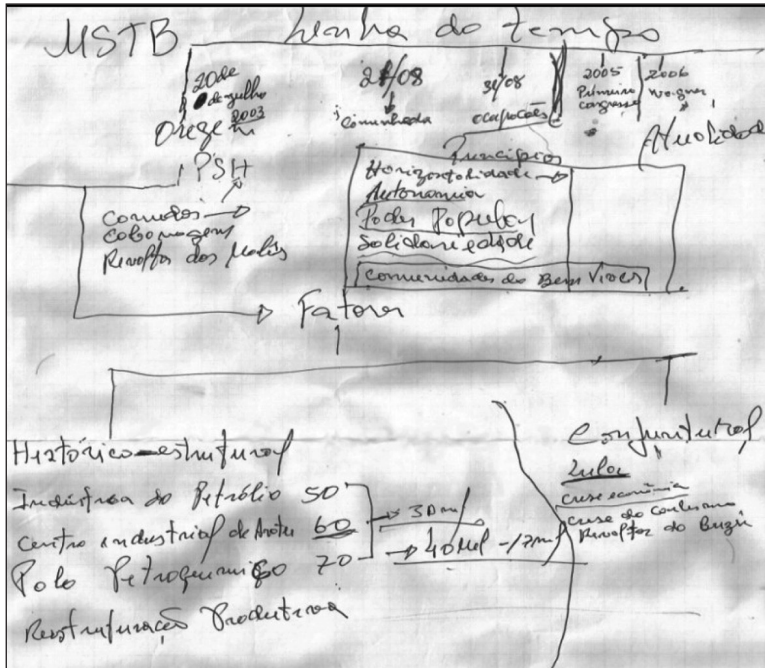 MSTB Linha do tempo
20 de julho 2003
Origem
PSH
21/08
Caminhada
31/08
ocupações
2005
Primeiro
congresso
2006
Wagner
Atualidade
Canudos
cabanagem
Revolta dos Malês
Princípios
Horizontalidade
Autonomia
Poder Popular
Solidariedade
Comunidades do Bem Viver
Fatores
Histórico-estrutural
Indústria do Petróleo 50
centro industrial de Aratu 60
Polo Petroquímico 70
30mil
40mil - 17mil
Reestruturação Produtiva
Conjuntural
Lula
crise econômica
crise do carlismo
Revolta do Buzú